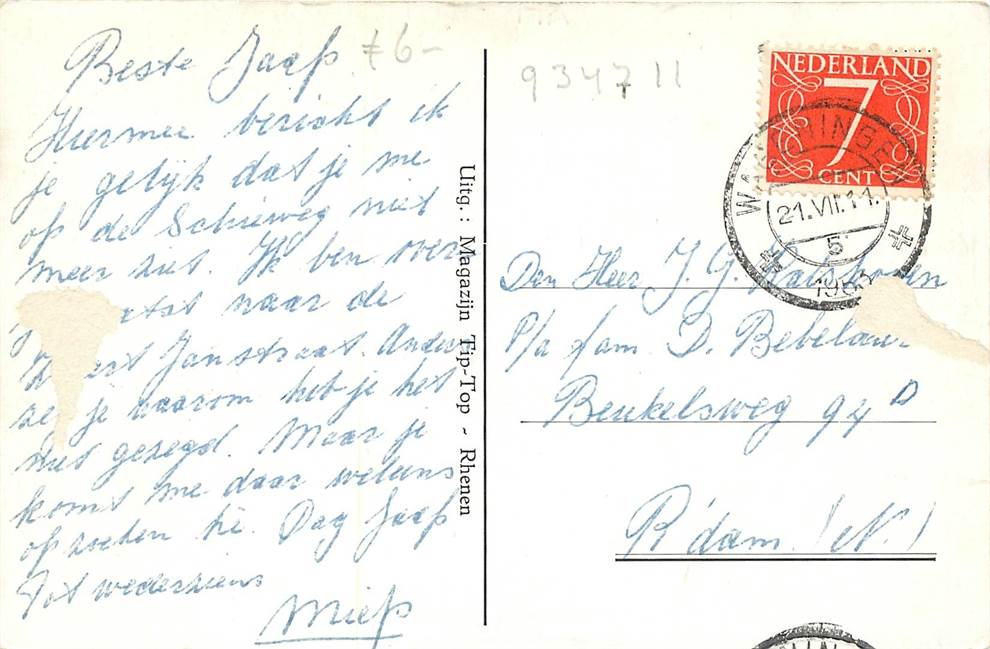 Beste Jaap
Hiermee bericht ik
je gelijk dat je me
op de Schieweg niet
meer ziet. Ik ben over
naar de
Janstraat. Anders
zeg je waarom heb je het
niet gezegd. Maar je
komt me daar weleens
opzoeken hè. Dag Jaap
Tot wederziens
Miep
f 6-
Uitg.: Magazijn Tip-Top - Rhenen
934711
NEDERLAND
7
CENT
WAGENINGEN
21.VII.11.
5
Den Heer J. G.
P/a fam. D.
Beukelsweg 94 D
R'dam (N.)